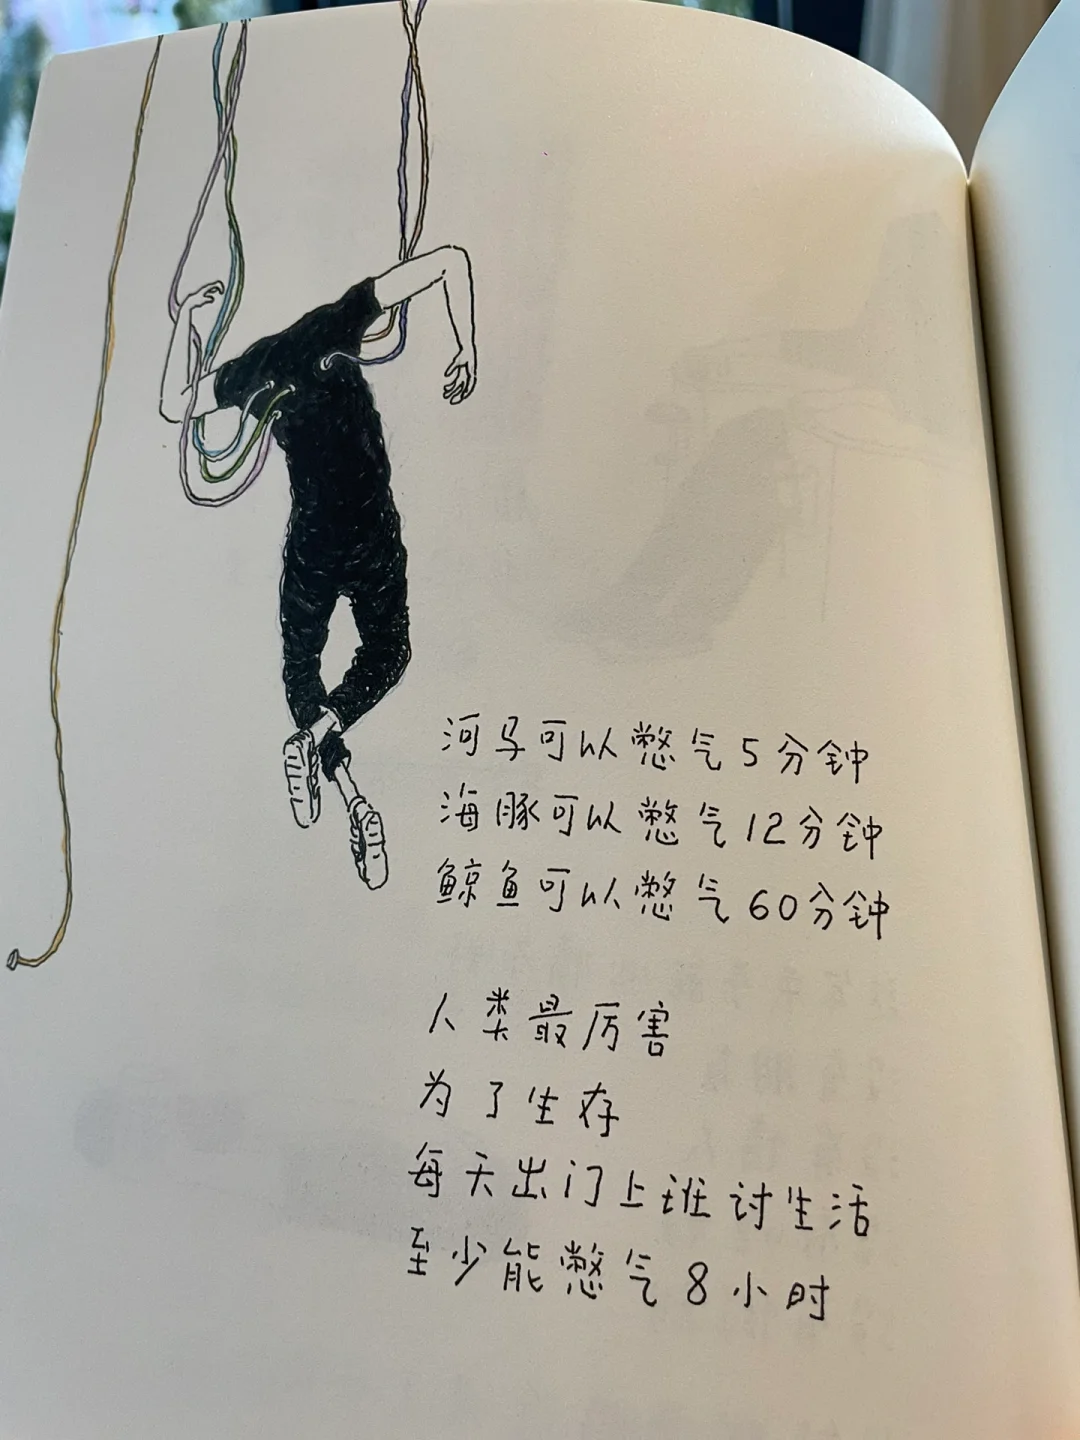 河马可以憋气5分钟
海豚可以憋气12分钟
鲸鱼可以憋气60分钟
人类最厉害
为了生存
每天出门上班讨生活
至少能憋气8小时